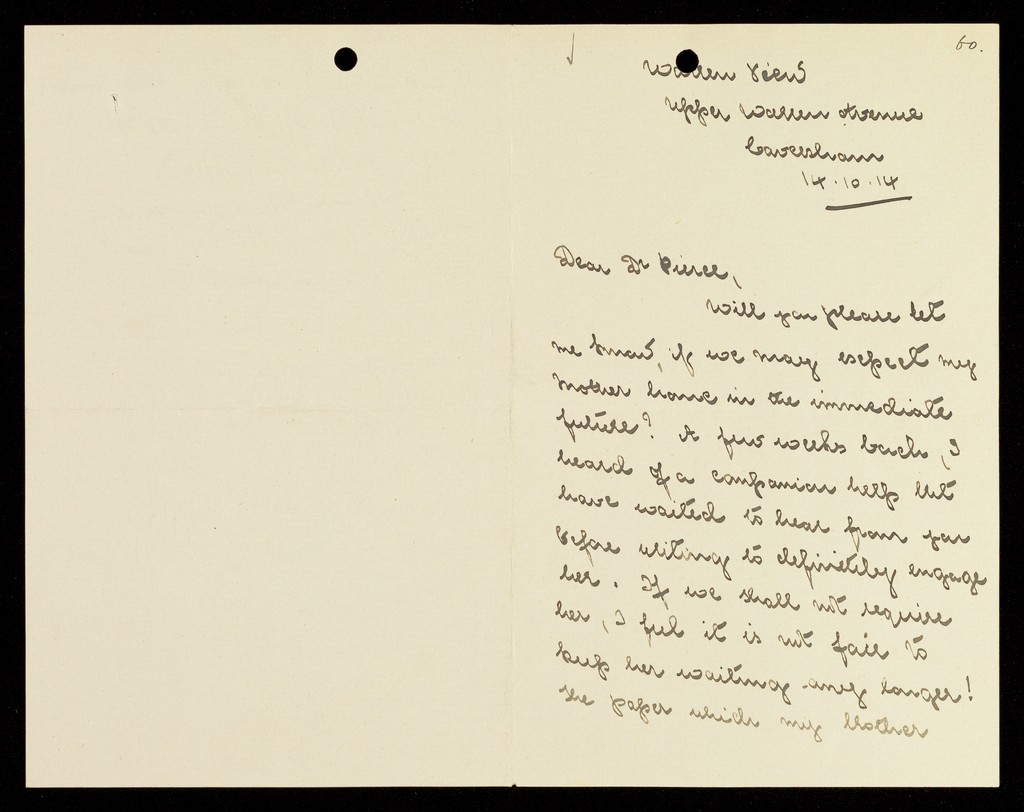 60.
Warren View
Upper Warren Avenue
Caversham
14.10.14
Dear Dr Pierce,
Will you please let
me know, if we may expect my
Mother home in the immediate
future? A few weeks back, I
heard of a companion help but
have waited to hear from you
before writing to definitely engage
her. If we shall not require
her, I feel it is not fair to
keep her waiting any longer!
The paper which my Mother